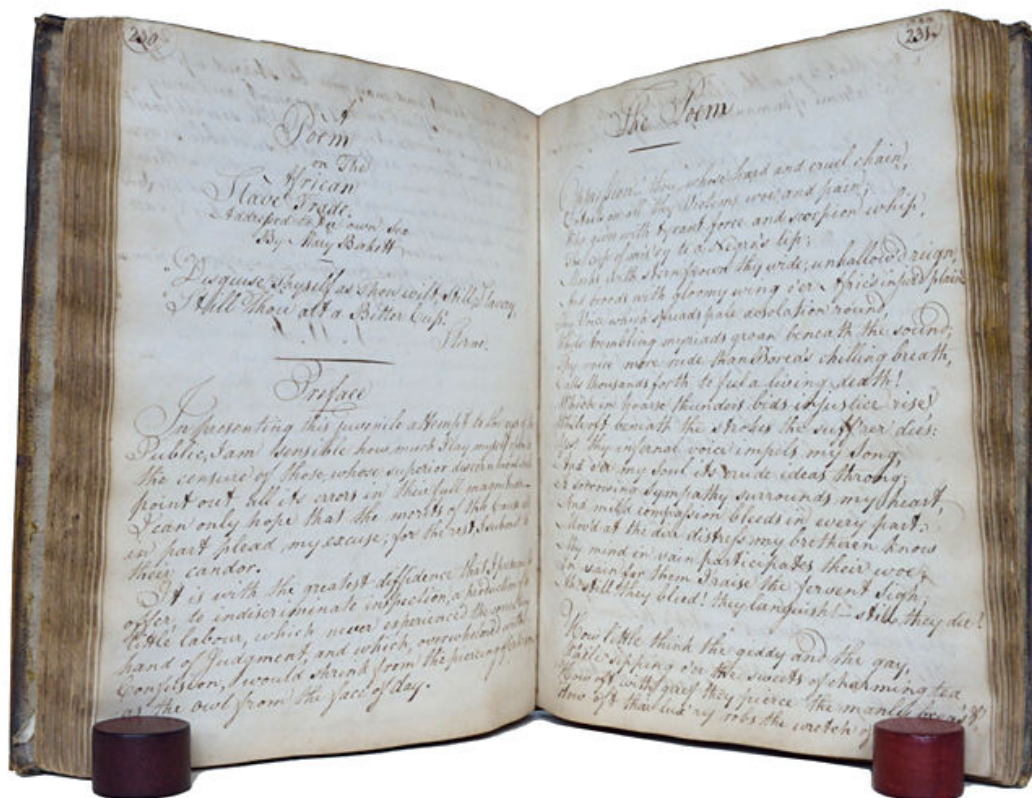 230
A
Poem
on The
African
Slave Trade.
Addressed to her own Sex
By Mary Birkett
"Disguise thyself as Thou wilt, Still, Slavery,
"Still Thou art a Bitter Cup."
Sterne.
Preface
In presenting this juvenile attempt to the eye of the
Public, I am sensible how much I lay myself open to
the censure of those, whose superior discernment will
point out all its errors in their full magnitude
I can only hope that the merits of the Cause will
in part plead my excuse; for the rest, I submit to
their candor.
It is with the greatest diffidence that I presume to
offer, to indiscriminate inspection, a production of
little labour, which never experienced the correcting
hand of Judgment, and which, overwhelmed with
Confusion, would shrink from the piercing
as the owl from the face of day.
231
The Poem
Oppression! thou, whose hard and cruel chain,
Entails on all thy victims woe and pain;
Who gives with tyrant force and scorpion whip,
The cup of mis'ry to a Negro's lip;
Marks with stern frown thy wide, unhallow'd reign,
And broods with gloomy wing o'er Afric's injur'd plain
Thy voice which spreads pale desolation round,
While trembling myriads groan beneath the sound;
Thy voice more rude than Boreas chilling breath,
Calls thousands forth to feel a living death!
Which in hoarse thunders bids injustice rise
While oft beneath the strokes the suff'rer dies:
Yes, thy infernal voice impels my song,
And o'er my Soul its crude ideas throng;
sorrowing Sympathy surrounds my heart,
And mild compassion bleeds in every part:
Mov'd at the dire distress my brethren know
My mind in vain participates their woe;
In vain for them I raise the fervent sigh,
No still they bleed! they languish! — still they die!
How little think the giddy and the gay,
While sipping o'er the sweets of charming tea
How oft with grief they pierce the manly breast
How oft their lux'ry robs the wretch of